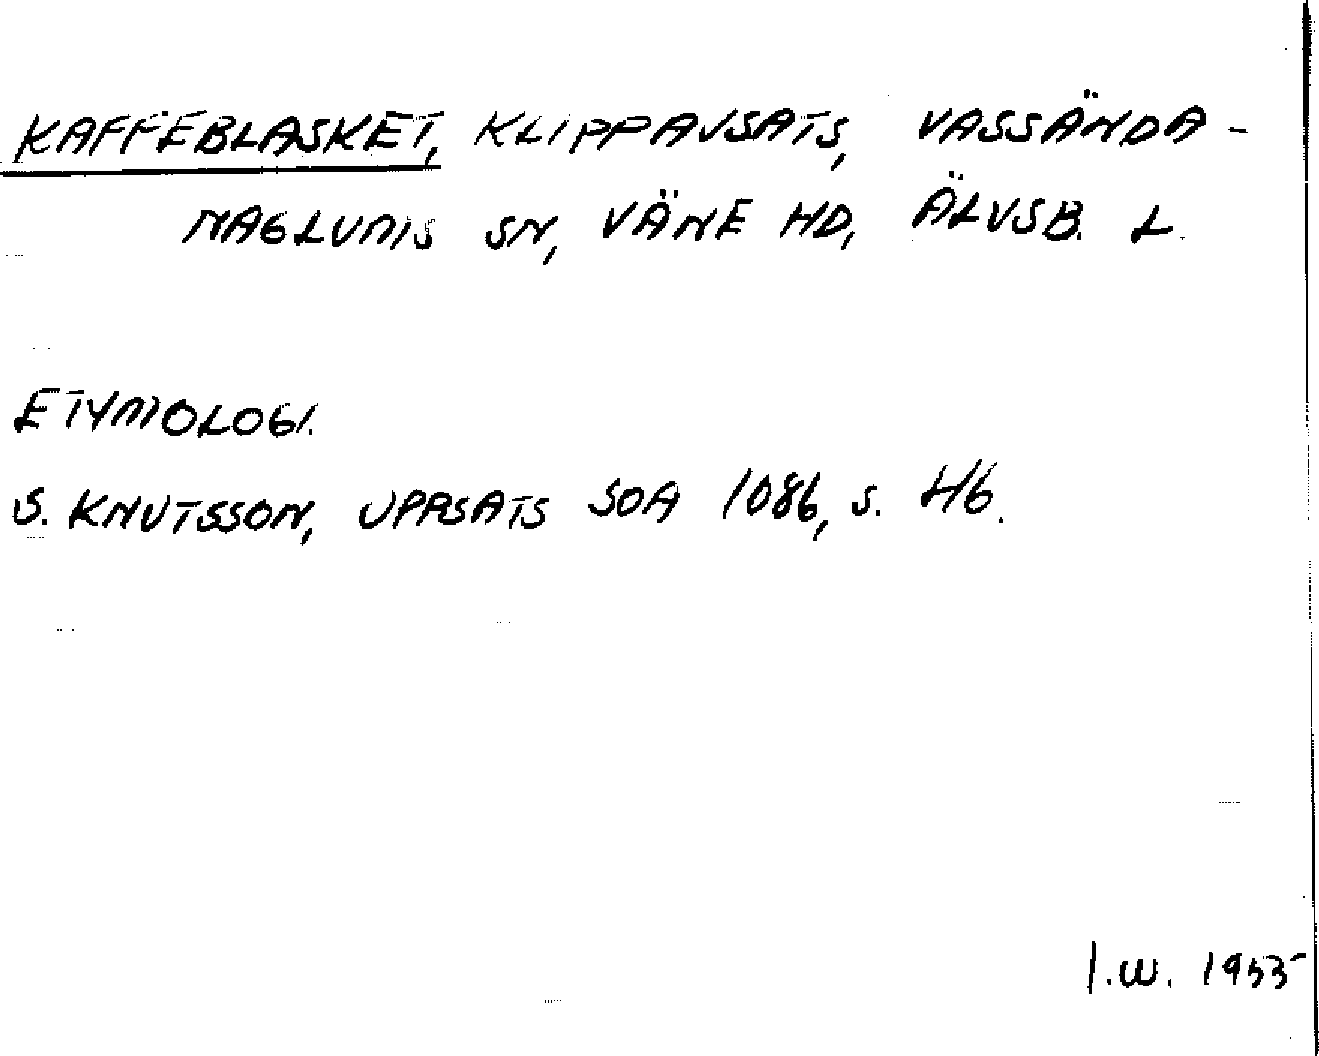 KAFFEBLASKET, KLIPPAVSATS, VASSÄNDA-
NAGLUMS SN, VÄNE HD, ÄLVSB. L.
ETYMOLOGI.
S. KNUTSSON, UPPSATS SOA 1086, S. 46.
I.W. 1953